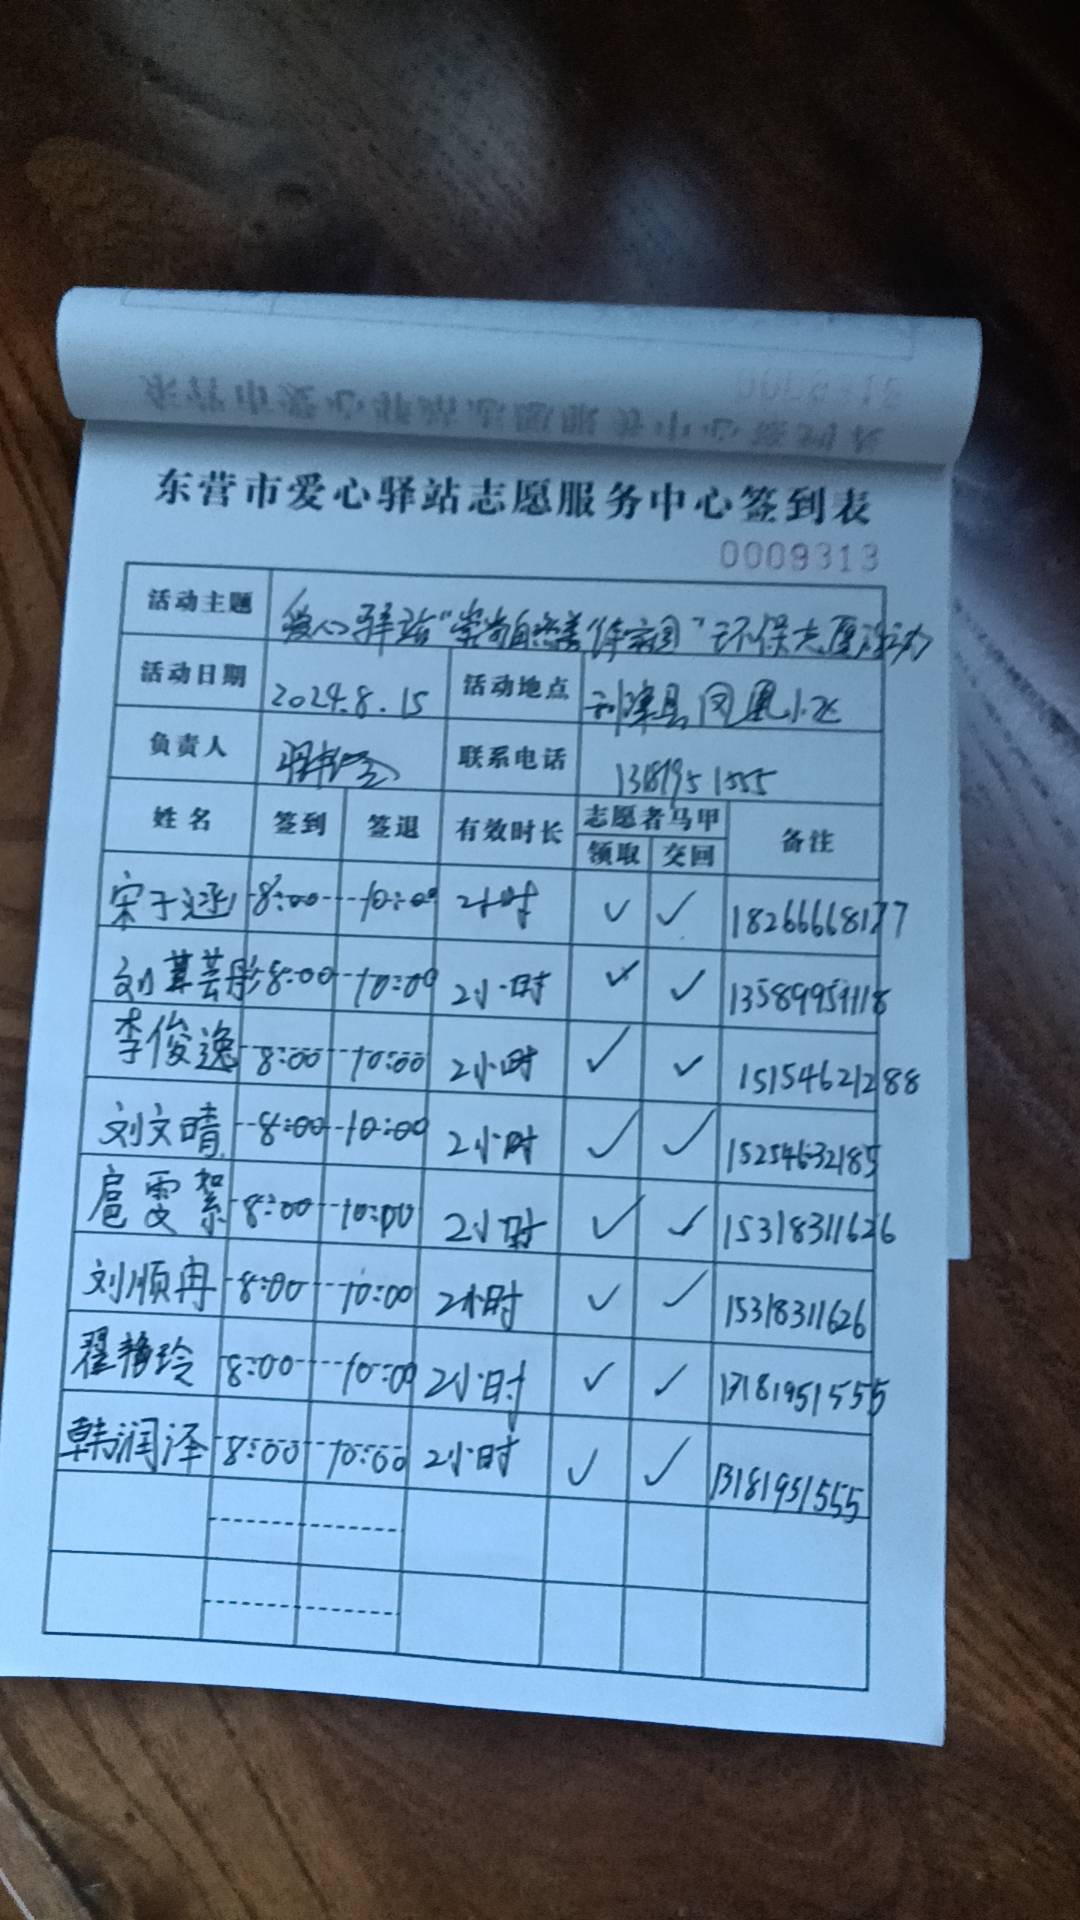 东营市爱心驿站志愿服务中心签到表
0009313
活动主题 爱心驿站“崇尚自然 美体家园”环保志愿活动
活动日期 2024.8.15 活动地点 利津县凤凰小区
负责人 联系电话 13181951555
姓名 签到 签退 有效时长 志愿者马甲 备注
领取 交回
宋子涵 8:00 10:00 2小时 ✓ ✓ 18266668177
刘萁芸彤 8:00 10:00 2小时 ✓ ✓ 13589951118
李俊逸 8:00 10:00 2小时 ✓ ✓ 15154621288
刘文晴 8:00 10:00 2小时 ✓ ✓ 15254632185
扈雯絮 8:00 10:00 2小时 ✓ ✓ 15318311626
刘顺冉 8:00 10:00 2小时 ✓ ✓ 15318311626
翟静玲 8:00 10:00 2小时 ✓ ✓ 13181951555
韩润泽 8:00 10:00 2小时 ✓ ✓ 13181951555